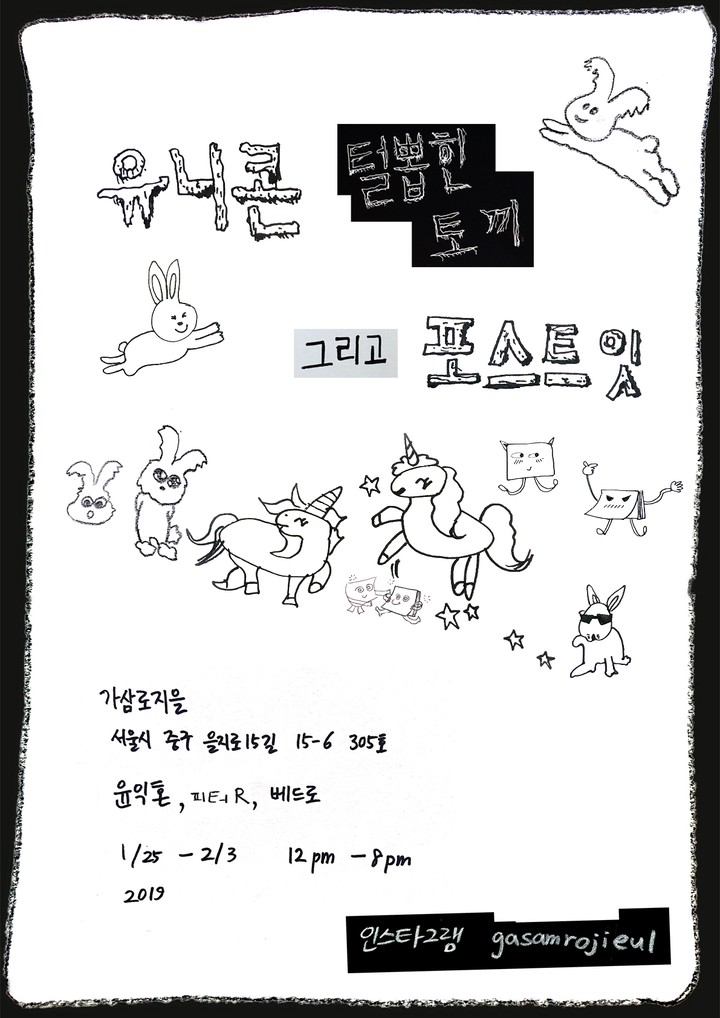 유니콘
털뽑힌
토끼
그리고
포스트잇
가삼로지을
서울시 중구 을지로15길 15-6 305호
윤익혼, 피터R, 베드로
1/25 - 2/3 12pm - 8pm
2019
인스타그램 gasamrojieul